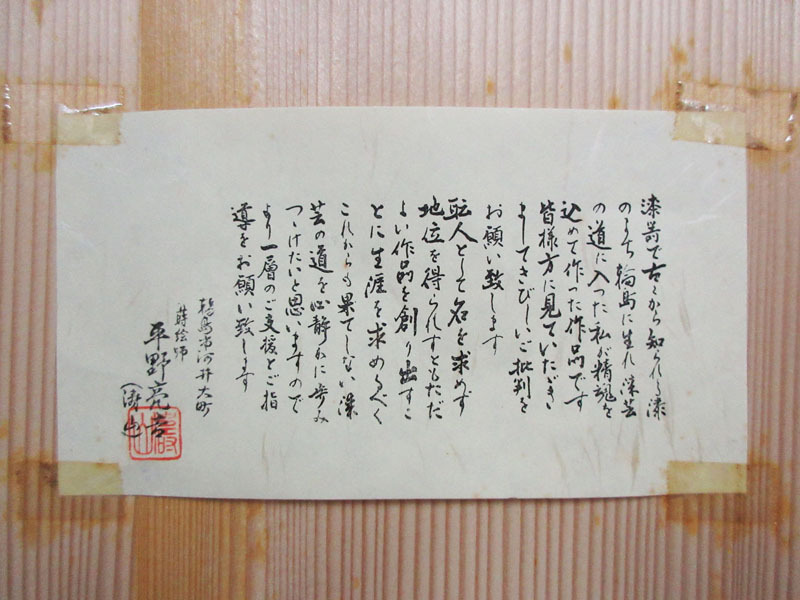 漆器で古くから知られる漆
のまち輪島に生れ漆芸
の道に入った私が精魂を
込めて作った作品です
皆様方に見ていただき
ましてきびしいご批判を
お願い致します
職人として名を求めず
地位を得られずともただ
よい作品を創り出すこ
とに生涯を求めるべく
これからも果てしない漆
芸の道を心静かに歩み
つゞけたいと思いますので
より一層のご支援とご指
導をお願い致します
輪島市河井大町
蒔絵師
平野亮吉